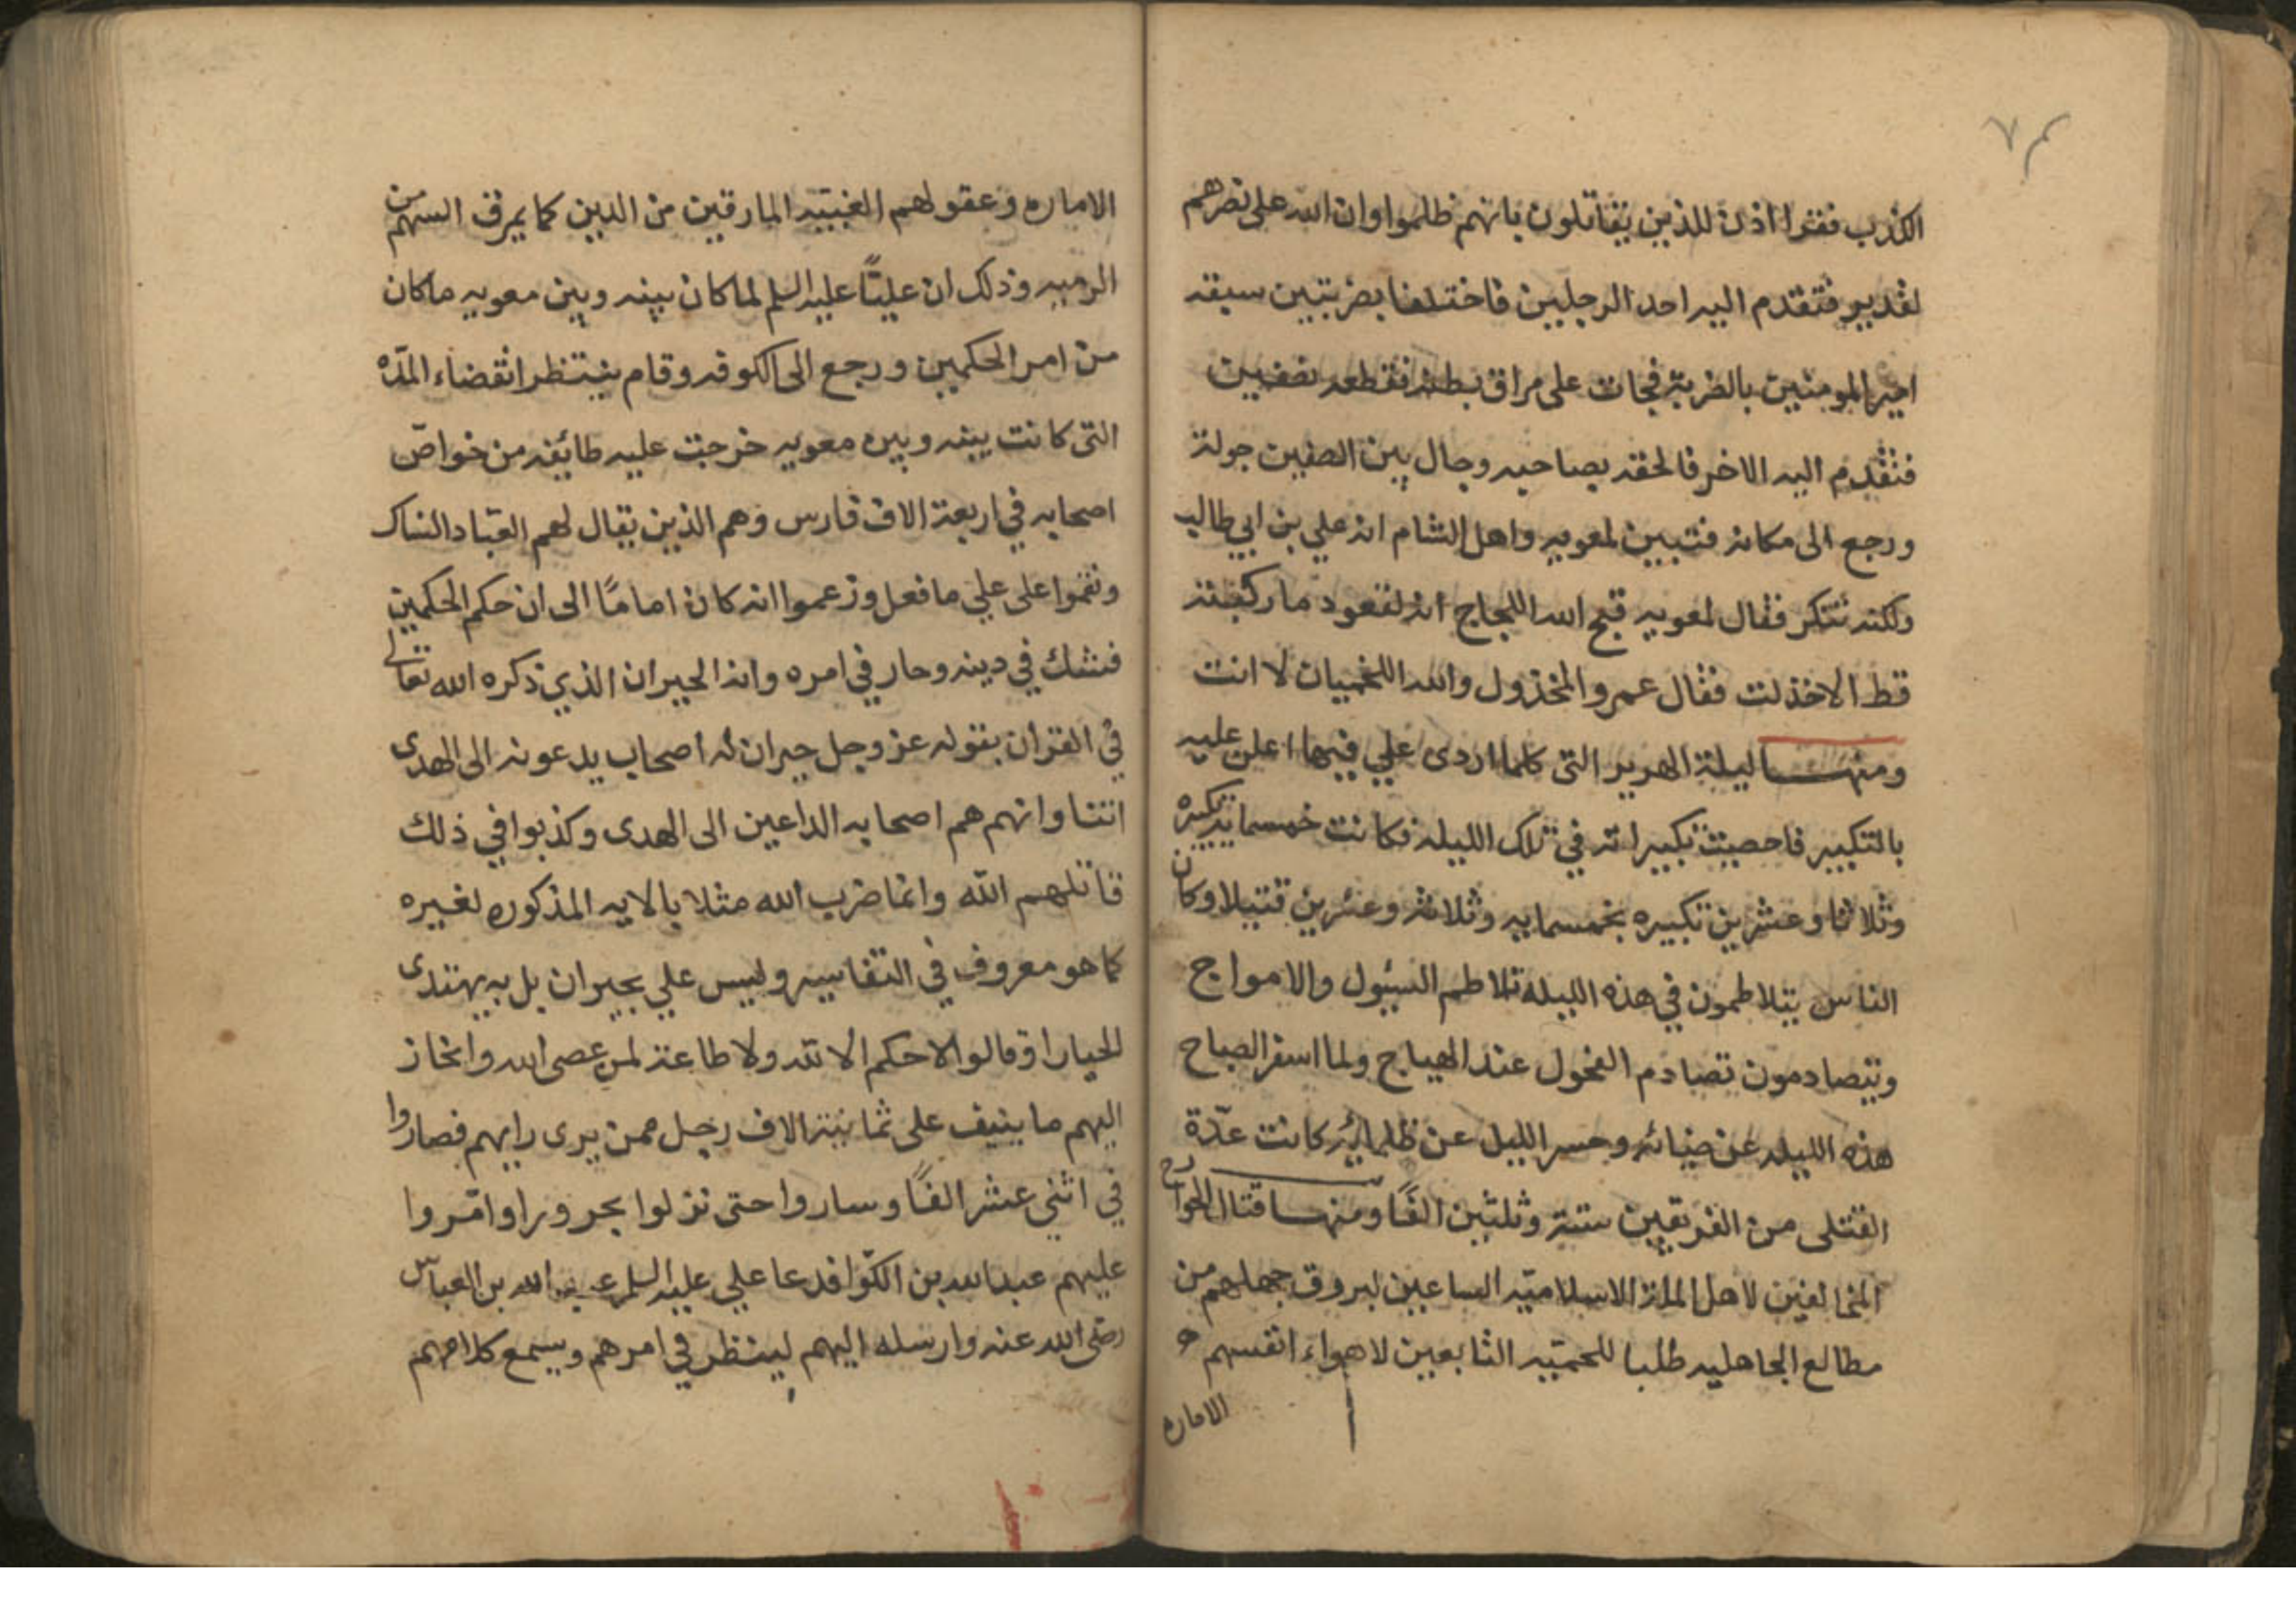 ٧٣
الكذب فقرا اذن للذين يقاتلون بانهم ظلموا وان الله على نصرهم
لقدير فتقدم اليه احد الرجلين فاختلفا بضربتين سبقه
امير المومنين بالضربة فجات على مراق بطنه فقطعه نصفين
فتقدم اليه الاخر فالحقه بصاحبه وجال بين الصفين جولة
ورجع الى مكانه فتبين لمعويه واهل الشام انه علي بن ابي طالب
ولكنه تنكر فقال لمعويه قبح الله اللجاج انه لقعود ما ركبته
قط الا خذلت فقال عمرو المخذول والله اللخميان لا انت
ومنها ليلة الهرير التى كلما اردى علي فيها اعلن عليه
بالتكبير فاحصيت تكبيراته في تلك الليله فكانت خمسمايه تكبيره
وثلاثا وعشرين تكبيره بخمسمايه وثلاثه وعشرين قتيلا وكان
الناس يتلاطمون في هذه الليله تلاطم السيول والامواج
ويتصادمون تصادم الفحول عند الهياج ولما اسفر الصباح
هذه الليله عن ضيائه وحسر الليل عن ظلمائه كانت عدّة
القتلى من الفريقين ستة وثلثين الفًا ومنها قتال الخوارج
المخالفين لاهل الملة الاسلاميّه الساعين لبروق جهلهم من
مطالع الجاهليه طلبا للحميّه التابعين لاهواء انفسهم
الاماره
الاماره وعقولهم الغبيّه المارقين من الدين كما يمرق السهم من
الرميه وذلك ان عليًّا عليه السلم لما كان بينه وبين معويه ما كان
من امر الحكمين ورجع الى الكوفه وقام ينتظر انقضاء المدّه
التى كانت بينه وبين معويه خرجت عليه طائفه من خواصّ
اصحابه في اربعة الاف فارس وهم الذين يقال لهم العبّاد النساك
ونقموا على علي ما فعل وزعموا انه كان امامًا الى ان حكم الحكمين
فشك في دينه وحار في امره وانه الحيران الذي ذكره الله تعالى
في القران بقوله عز وجل حيران له اصحاب يدعونه الى الهدى
ائتنا وانهم هم اصحابه الداعين الى الهدى وكذبوا في ذلك
قاتلهم الله وانما ضرب الله مثلا بالايه المذكوره لغيره
كما هو معروف في التفاسير وليس علي بحيران بل به يهتدى
الحيارا وقالوا لا حكم الا لله ولا طاعة لمن عصى الله وانحاز
اليهم ما ينيف على ثمانية الاف رجل ممن يرى رايهم فصاروا
في اثني عشر الفًا وساروا حتى نزلوا بحرورا وامّروا
عليهم عبد الله بن الكوّا فدعا علي عليه السلم عبد الله بن العباس
رضى الله عنه وارسله اليهم لينظر في امرهم ويسمع كلامهم